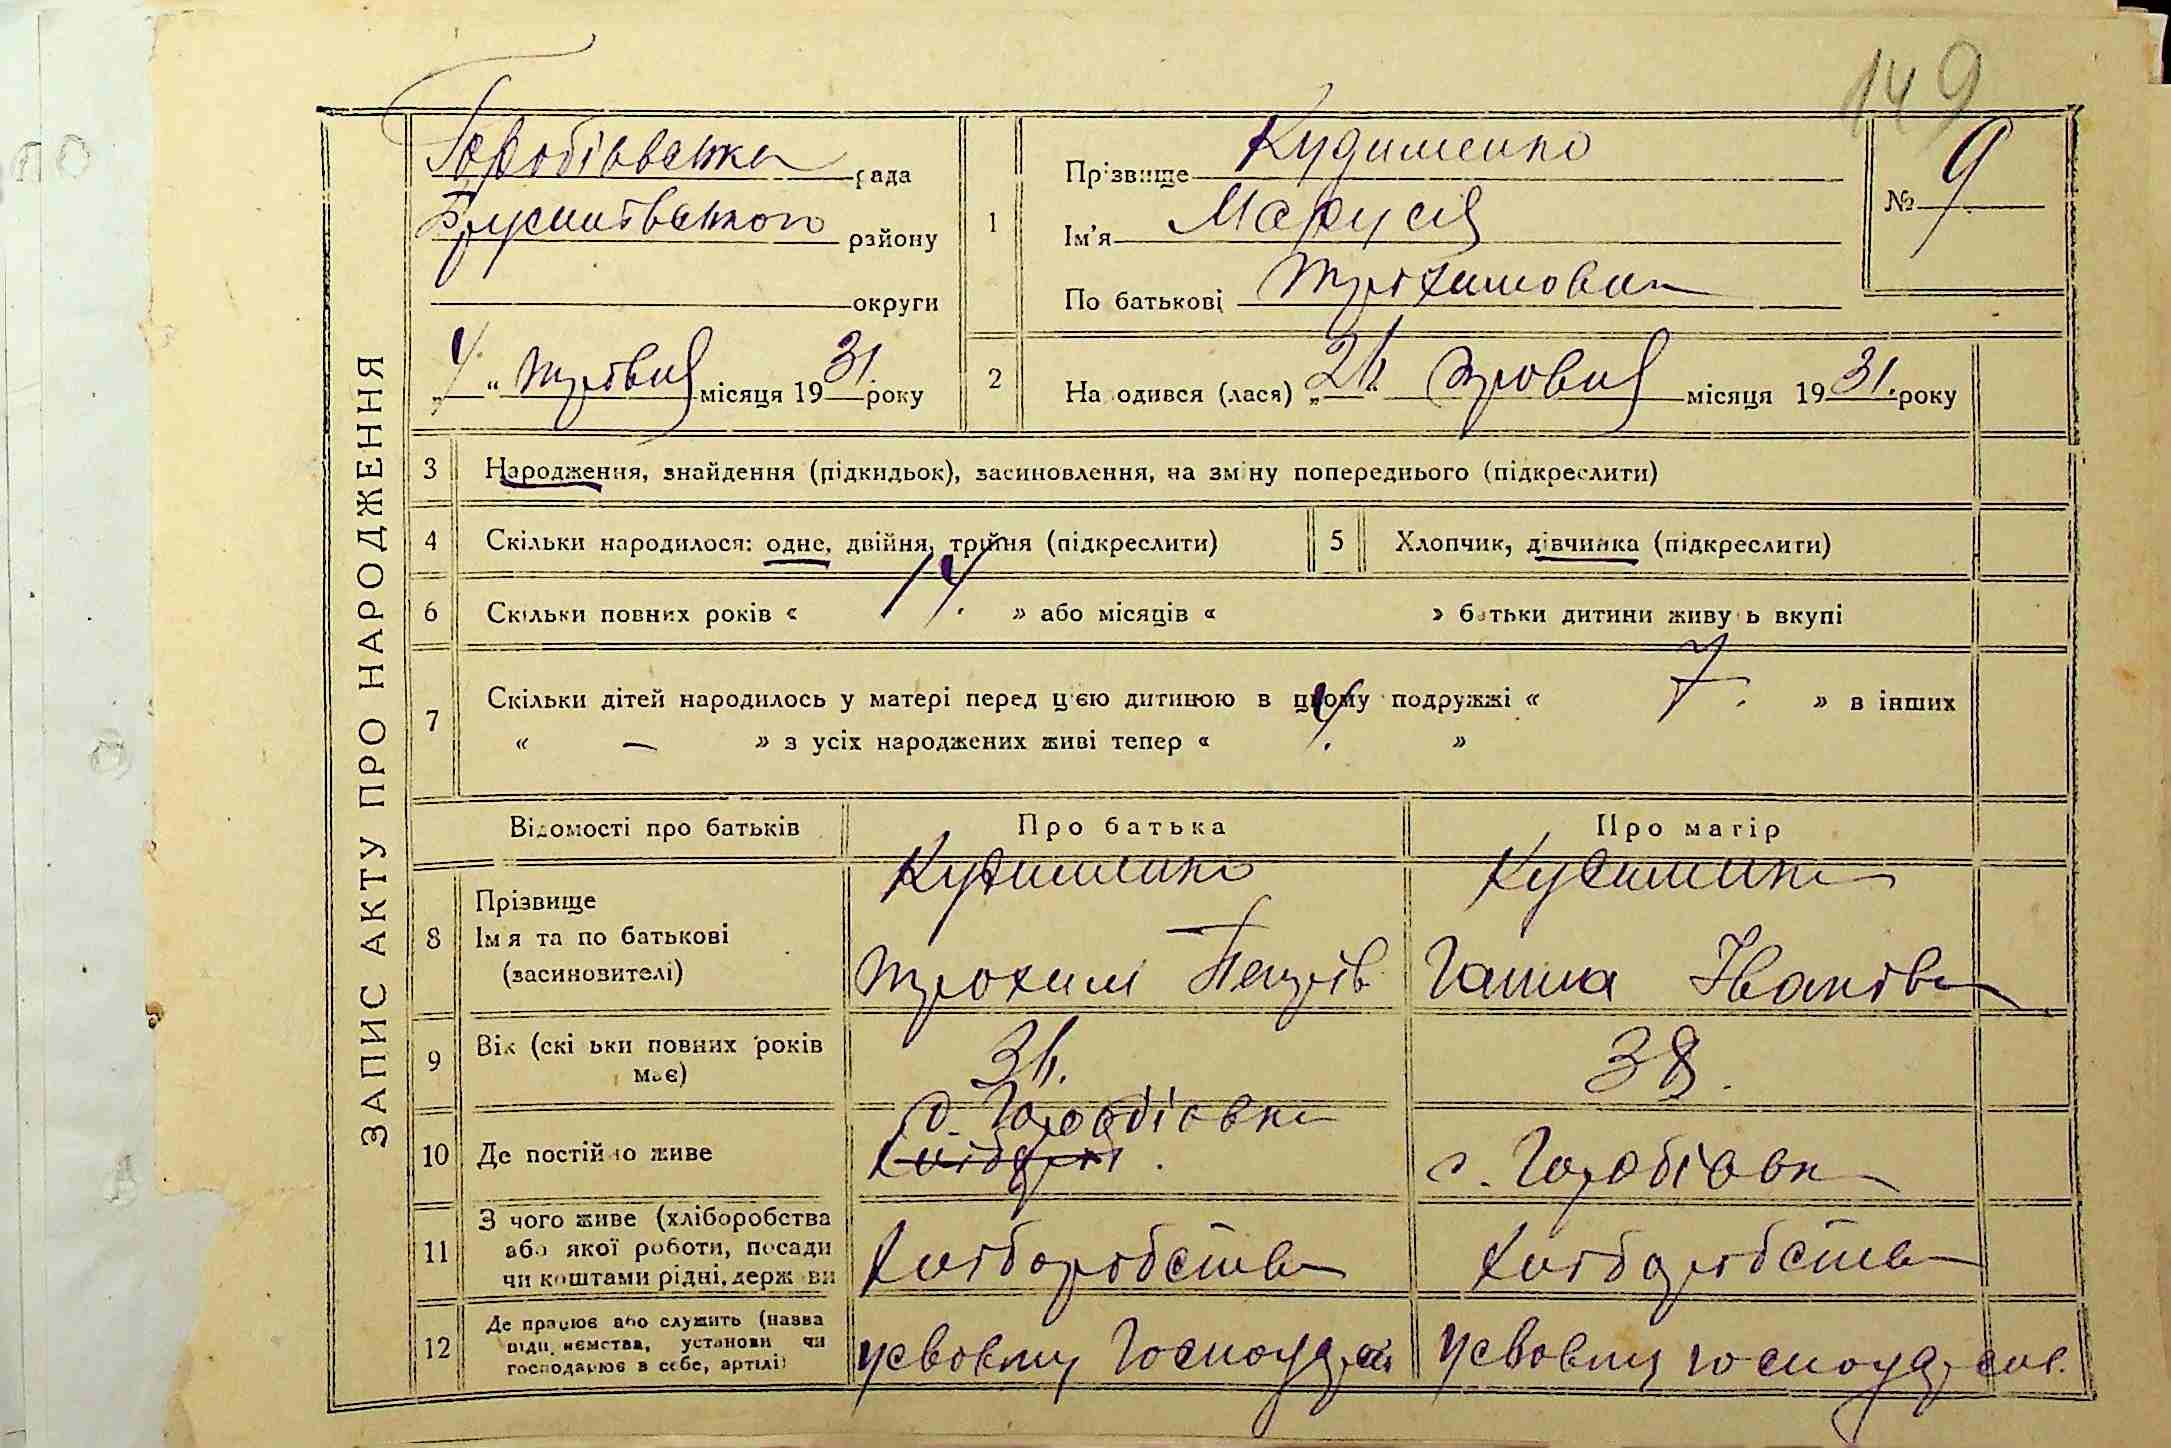 149
ЗАПИС АКТУ ПРО НАРОДЖЕННЯ
Горобіовська рада
району
округи
"4" травня місяця 1931. року
1 Прізвище Кудименко
Ім'я Маруся
По батькові Трохимовна
№ 9
2 На одився (лася) „ травня місяця 1931. року
3 Народження, знайдення (підкидьок), засиновлення, на зміну попереднього (підкреслити)
4 Скільки народилося: одне, двійня, трійня (підкреслити)
5 Хлопчик, дівчинка (підкреслити)
6 Скільки повних років « 14. » або місяців « » батьки дитини живу ь вкупі
7 Скільки дітей народилось у матері перед цією дитиною в цьому подружжі « 7. » в інших
« — » з усіх народжених живі тепер « 4. »
Відомості про батьків Про батька Про матір
8 Прізвище
Ім я та по батькові
(засиновителі)
Кудименко
Трохим Петрів
Кудименко
Ганна Іванівна
9 Вік (скі ьки повних років
має)
38.
10 Де постійно живе
с. Горобіовка
с. Горобіовка
11 З чого живе (хліборобства
або якої роботи, посади
чи коштами рідні, держ ви
Хліборобства
Хліборобства
12 Де працює або служить (назва
підп иємства, установи чи
господарює в себе, артілі)
усвоєму господар
усвоєму господар